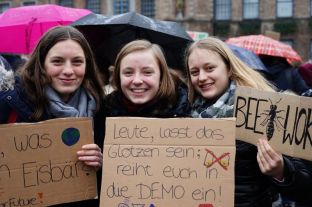 , was
n Eisbä
r Future!
Leute, lasst das
Glotzen sein;
reiht euch in
die DEMO ein!
BEE
WOR